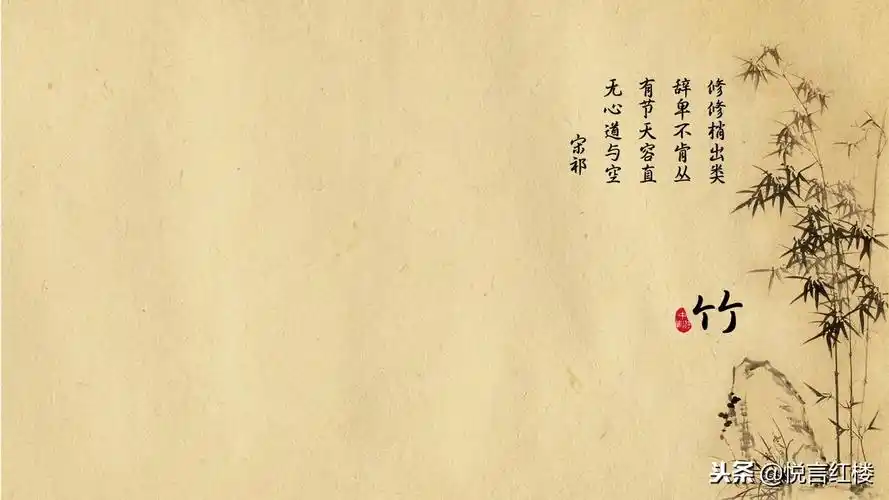 修修梢出类
辞卑不肯丛
有节天容直
无心道与空
宋祁
竹
头条 @悦言红楼